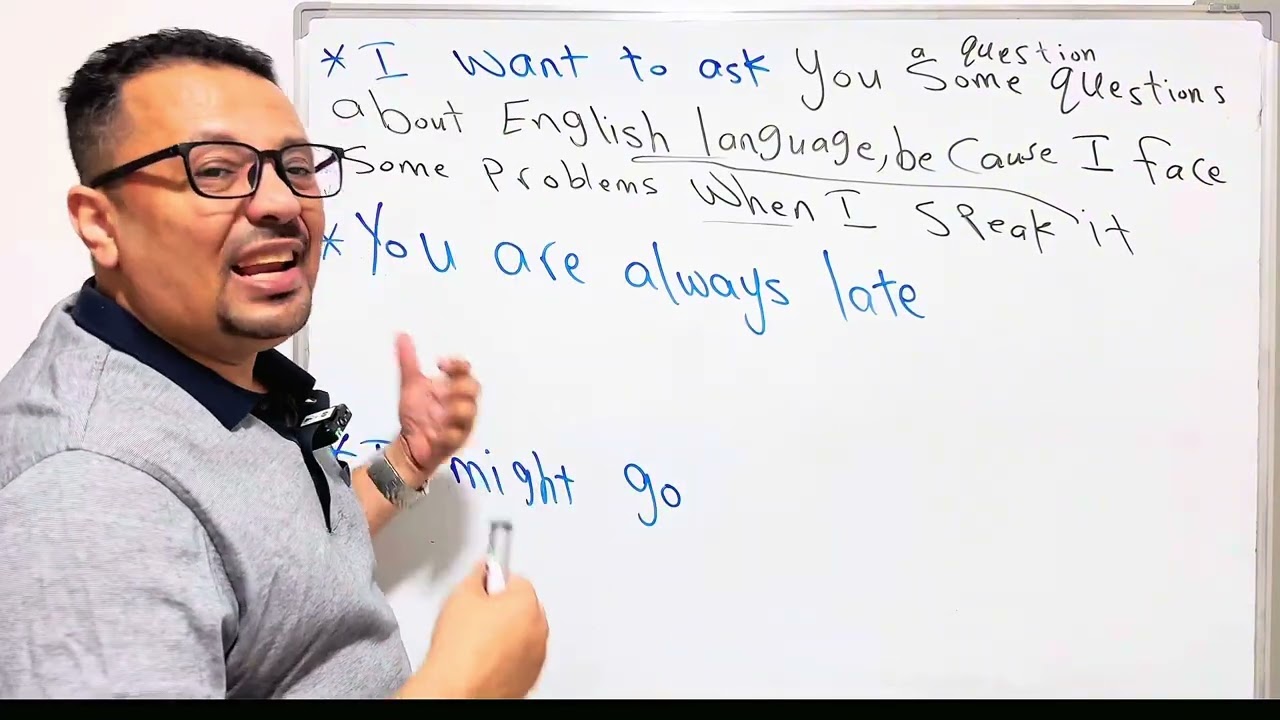 * I want to ask You a question
Some questions
about English language, because I face
Some Problems When I Speak it
* You are always late
* I might go